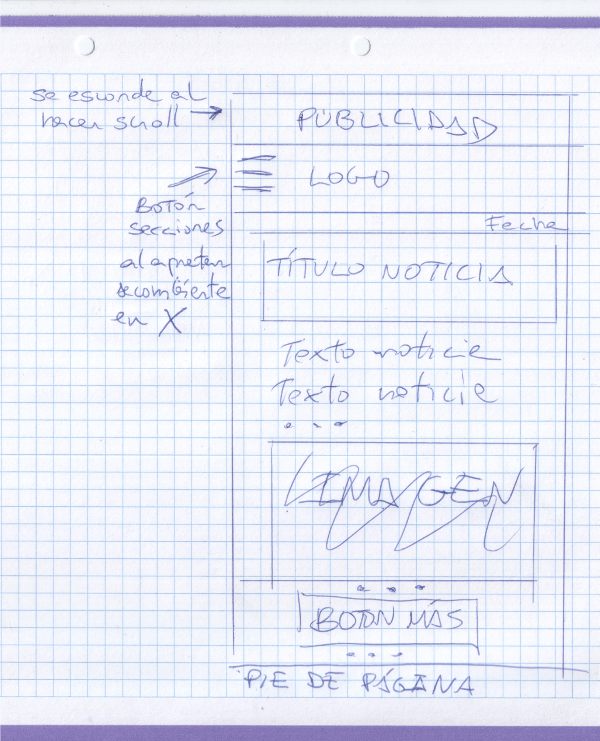 se esconde al
hacer scroll →
PUBLICIDAD
LOGO
Botón
secciones
al apretar
se convierte
en X
Fecha
TÍTULO NOTICIA
Texto noticia
Texto noticia
...
IMAGEN
...
BOTON MÁS
...
PIE DE PÁGINA